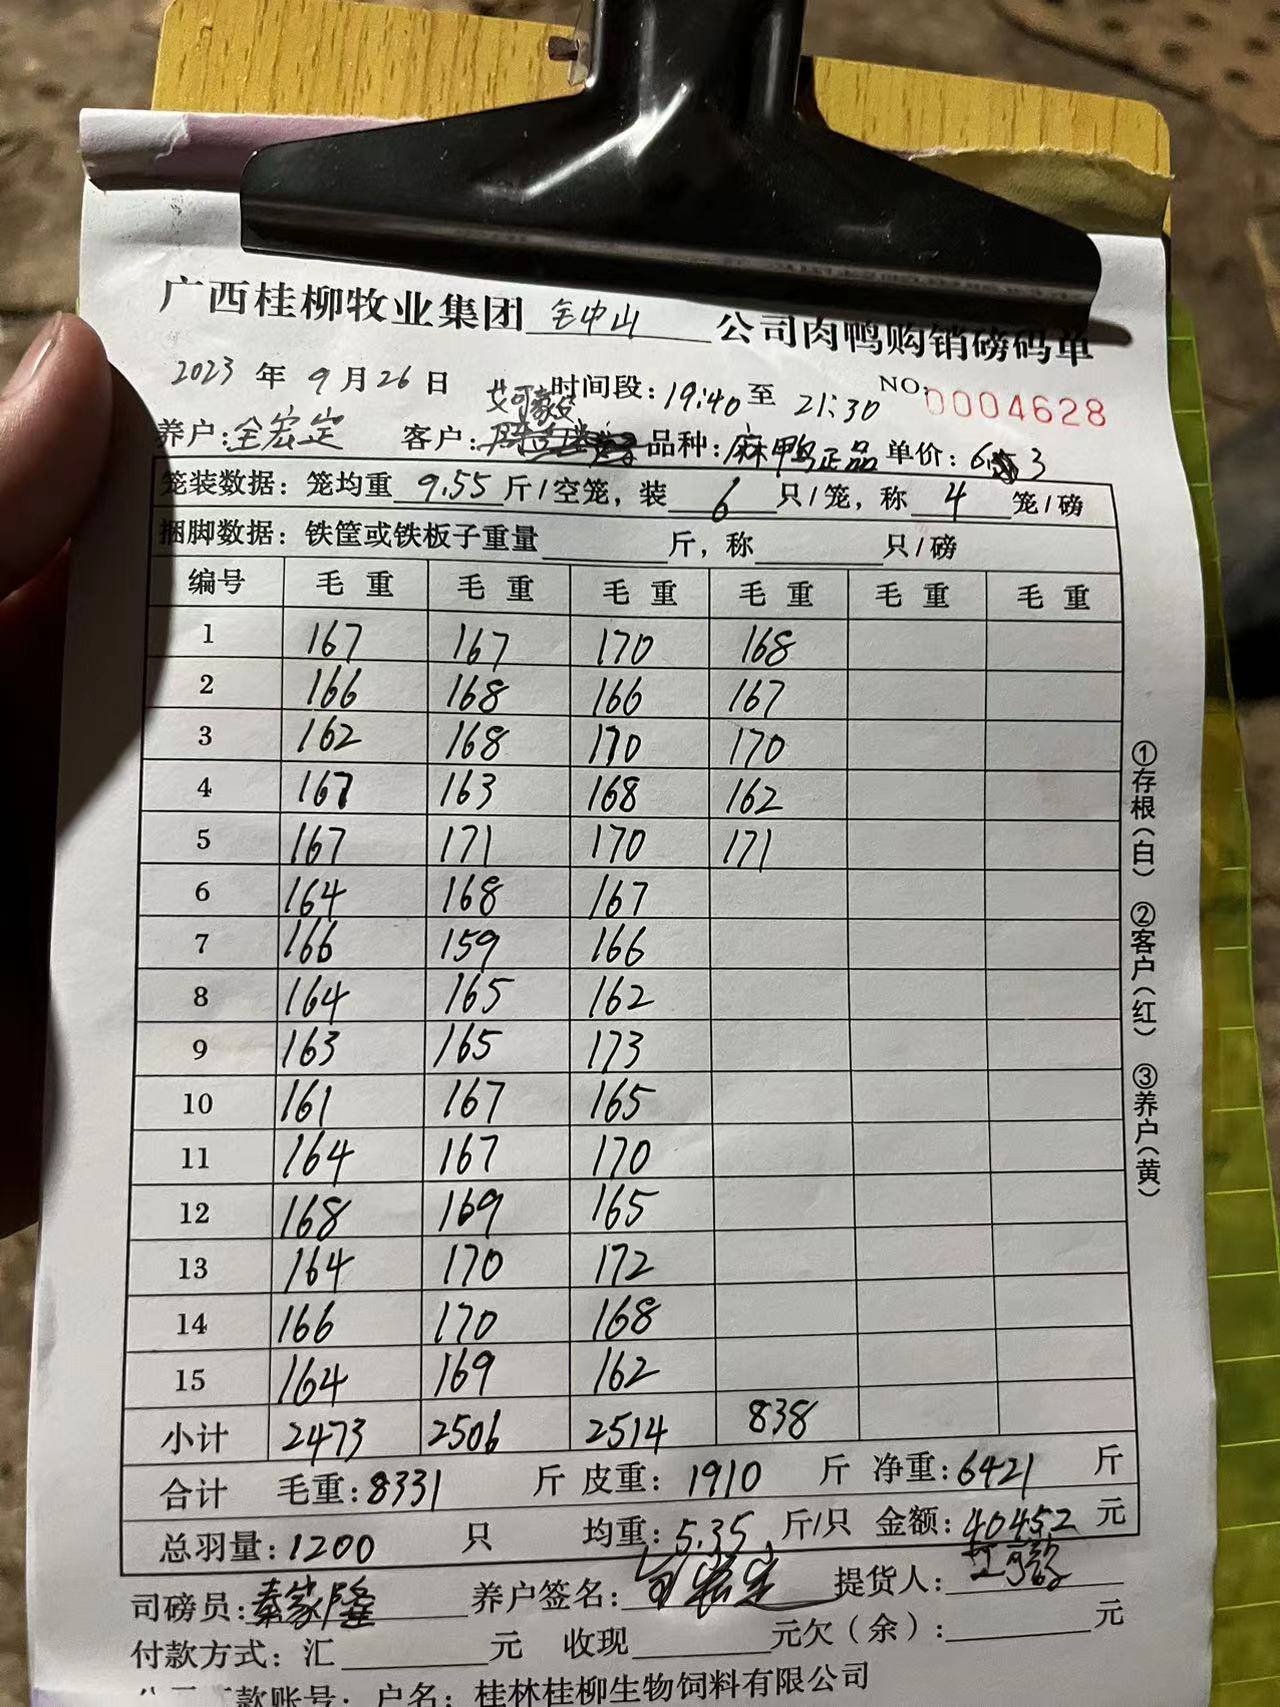 广西桂柳牧业集团 全中山 公司肉鸭购销磅码单
2023 年 9 月 26 日 时间段: 19:40 至 21:30 NO: 0004628
养户: 全宏定 客户: 品种: 麻鸭正品 单价: 6.3
笼装数据: 笼均重 9.55 斤/空笼, 装 6 只/笼, 称 4 笼/磅
捆脚数据: 铁筐或铁板子重量 斤, 称 只/磅
编号 毛重 毛重 毛重 毛重 毛重 毛重
1 167 167 170 168
2 166 168 166 167
3 162 168 170 170
4 167 163 168 162
5 167 171 170 171
6 164 168 167
7 166 159 166
8 164 165 162
9 163 165 173
10 161 167 165
11 164 167 170
12 168 169 165
13 164 170 172
14 166 170 168
15 164 169 162
小计 2473 2506 2514 838
合计 毛重: 8331 斤 皮重: 1910 斤 净重: 6421 斤
总羽量: 1200 只 均重: 5.35 斤/只 金额: 40452 元
司磅员: 秦家隆 养户签名: 提货人:
付款方式: 汇 元 收现 元欠(余): 元
款账号: 户名: 桂林桂柳生物饲料有限公司
①存根(白) ②客户(红) ③养户(黄)